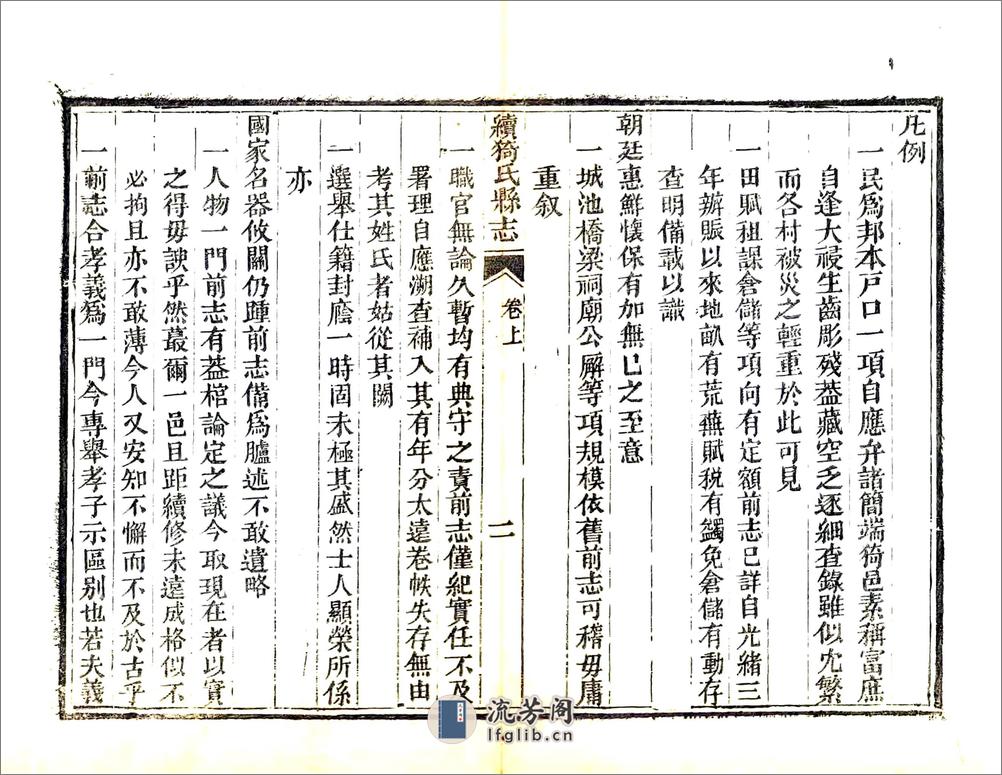 凡例
一民爲邦本戸口一項自應弁諸簡端猗邑素稱富庶
自逢大祲生齒彫殘葢藏空乏逐細查錄雖似冗繁
而各村被災之輕重於此可見
一田賦租課倉儲等項向有定額前志已詳自光緒三
年辦賑以來地畝有荒蕪賦税有蠲免倉儲有動存
查明備載以識
朝廷惠鮮懷保有加無已之至意
一城池橋梁祠廟公廨等項規模依舊前志可稽毋庸
重叙
續猗氏縣志
卷上
二
一職官無論久暫均有典守之責前志僅紀實任不及
署理自應溯查補入其有年分太遠卷帙失存無由
考其姓氏者姑從其闕
一選舉仕籍封廕一時固未極其盛然士人顯榮所係
亦
國家名器攸關仍踵前志備爲臚述不敢遺略
一人物一門前志有葢棺論定之議今取現在者以實
之得毋諛乎然蕞爾一邑且距續修未遠成格似不
必拘且亦不敢薄今人又安知不懈而不及於古乎
一前志合孝義爲一門今專舉孝子示區别也若夫義
流芳阁
lfglib.cn